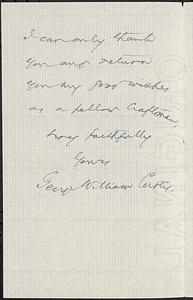 I can only thank
you and return
you my good wishes
as a fellow craftsman,
Very faithfully
Yours
George William Curtis.